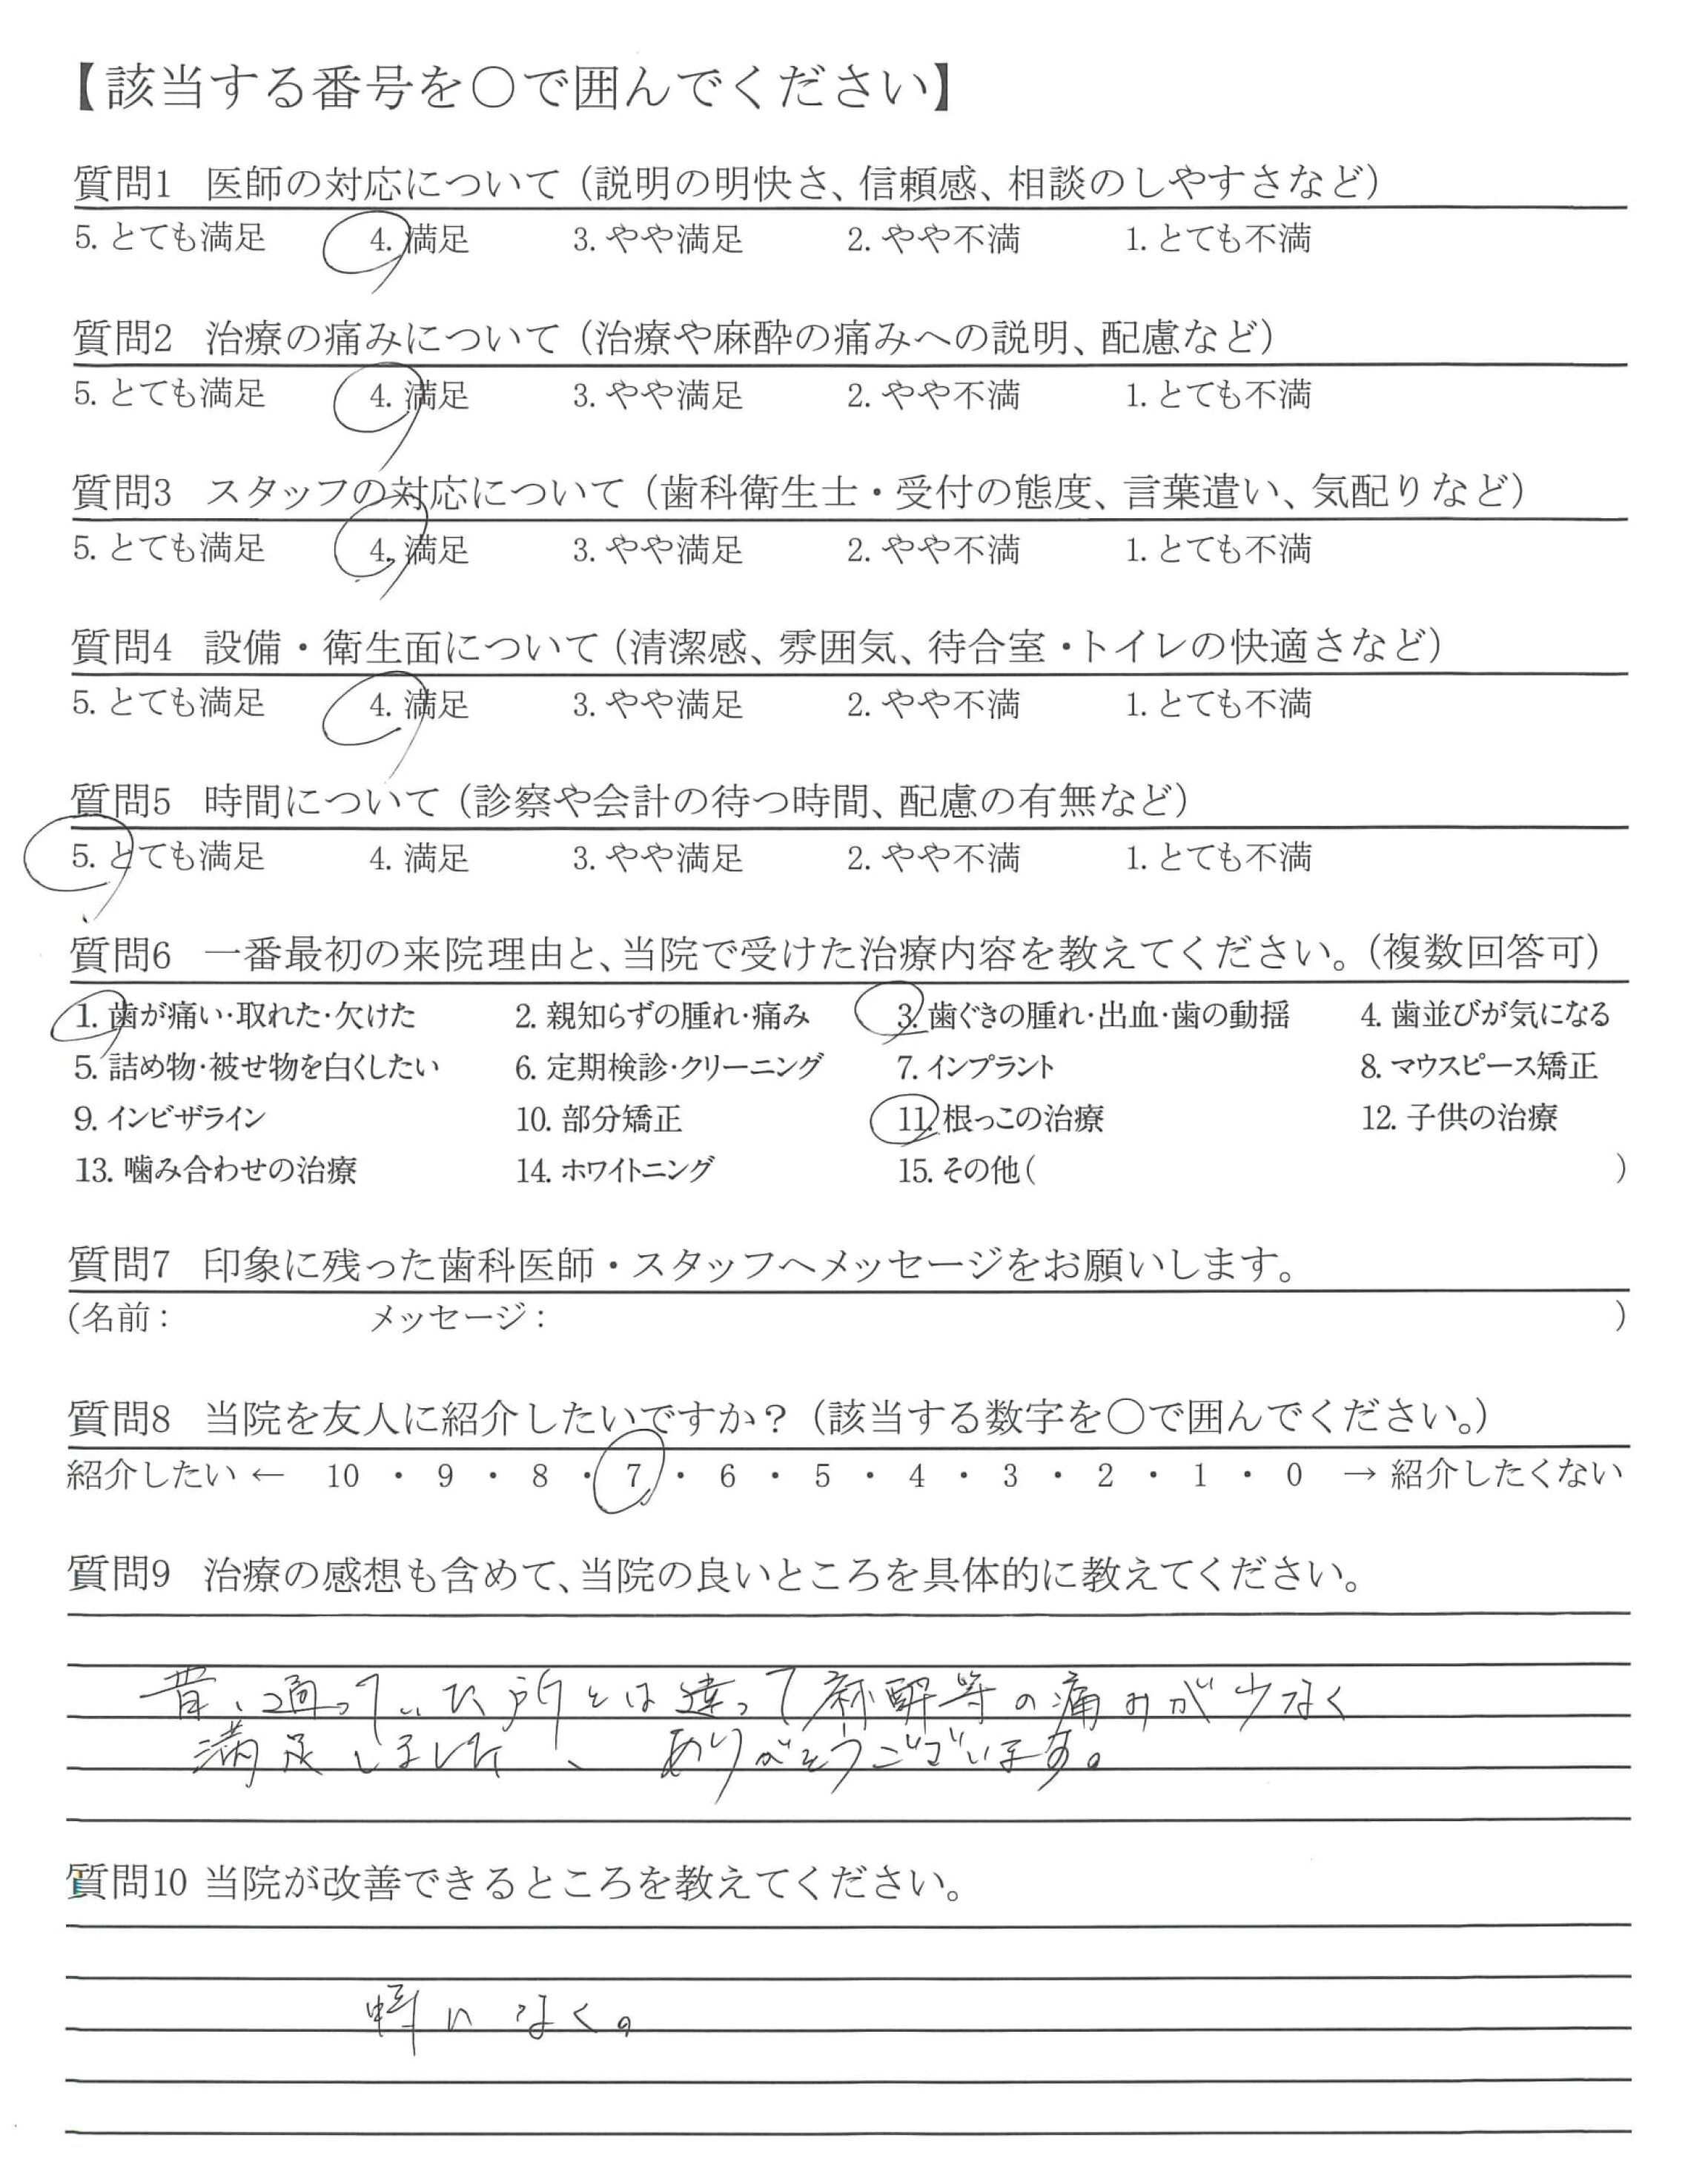 【該当する番号を○で囲んでください】
質問1 医師の対応について（説明の明快さ、信頼感、相談のしやすさなど）
5. とても満足 4. 満足 3. やや満足 2. やや不満 1. とても不満
質問2 治療の痛みについて（治療や麻酔の痛みへの説明、配慮など）
5. とても満足 4. 満足 3. やや満足 2. やや不満 1. とても不満
質問3 スタッフの対応について（歯科衛生士・受付の態度、言葉遣い、気配りなど）
5. とても満足 4. 満足 3. やや満足 2. やや不満 1. とても不満
質問4 設備・衛生面について（清潔感、雰囲気、待合室・トイレの快適さなど）
5. とても満足 4. 満足 3. やや満足 2. やや不満 1. とても不満
質問5 時間について（診察や会計の待つ時間、配慮の有無など）
5. とても満足 4. 満足 3. やや満足 2. やや不満 1. とても不満
質問6 一番最初の来院理由と、当院で受けた治療内容を教えてください。（複数回答可）
1. 歯が痛い･取れた･欠けた 2. 親知らずの腫れ･痛み 3. 歯ぐきの腫れ･出血･歯の動揺 4. 歯並びが気になる
5. 詰め物･被せ物を白くしたい 6. 定期検診･クリーニング 7. インプラント 8. マウスピース矯正
9. インビザライン 10. 部分矯正 11. 根っこの治療 12. 子供の治療
13. 噛み合わせの治療 14. ホワイトニング 15. その他（ ）
質問7 印象に残った歯科医師・スタッフへメッセージをお願いします。
（名前： メッセージ： ）
質問8 当院を友人に紹介したいですか？（該当する数字を○で囲んでください。）
紹介したい ← 10 ・ 9 ・ 8 ・ 7 ・ 6 ・ 5 ・ 4 ・ 3 ・ 2 ・ 1 ・ 0 → 紹介したくない
質問9 治療の感想も含めて、当院の良いところを具体的に教えてください。
昔、通っていた所とは違って麻酔等の痛みが少なく
満足しました！、ありがとうございます。
質問10 当院が改善できるところを教えてください。
特になく。